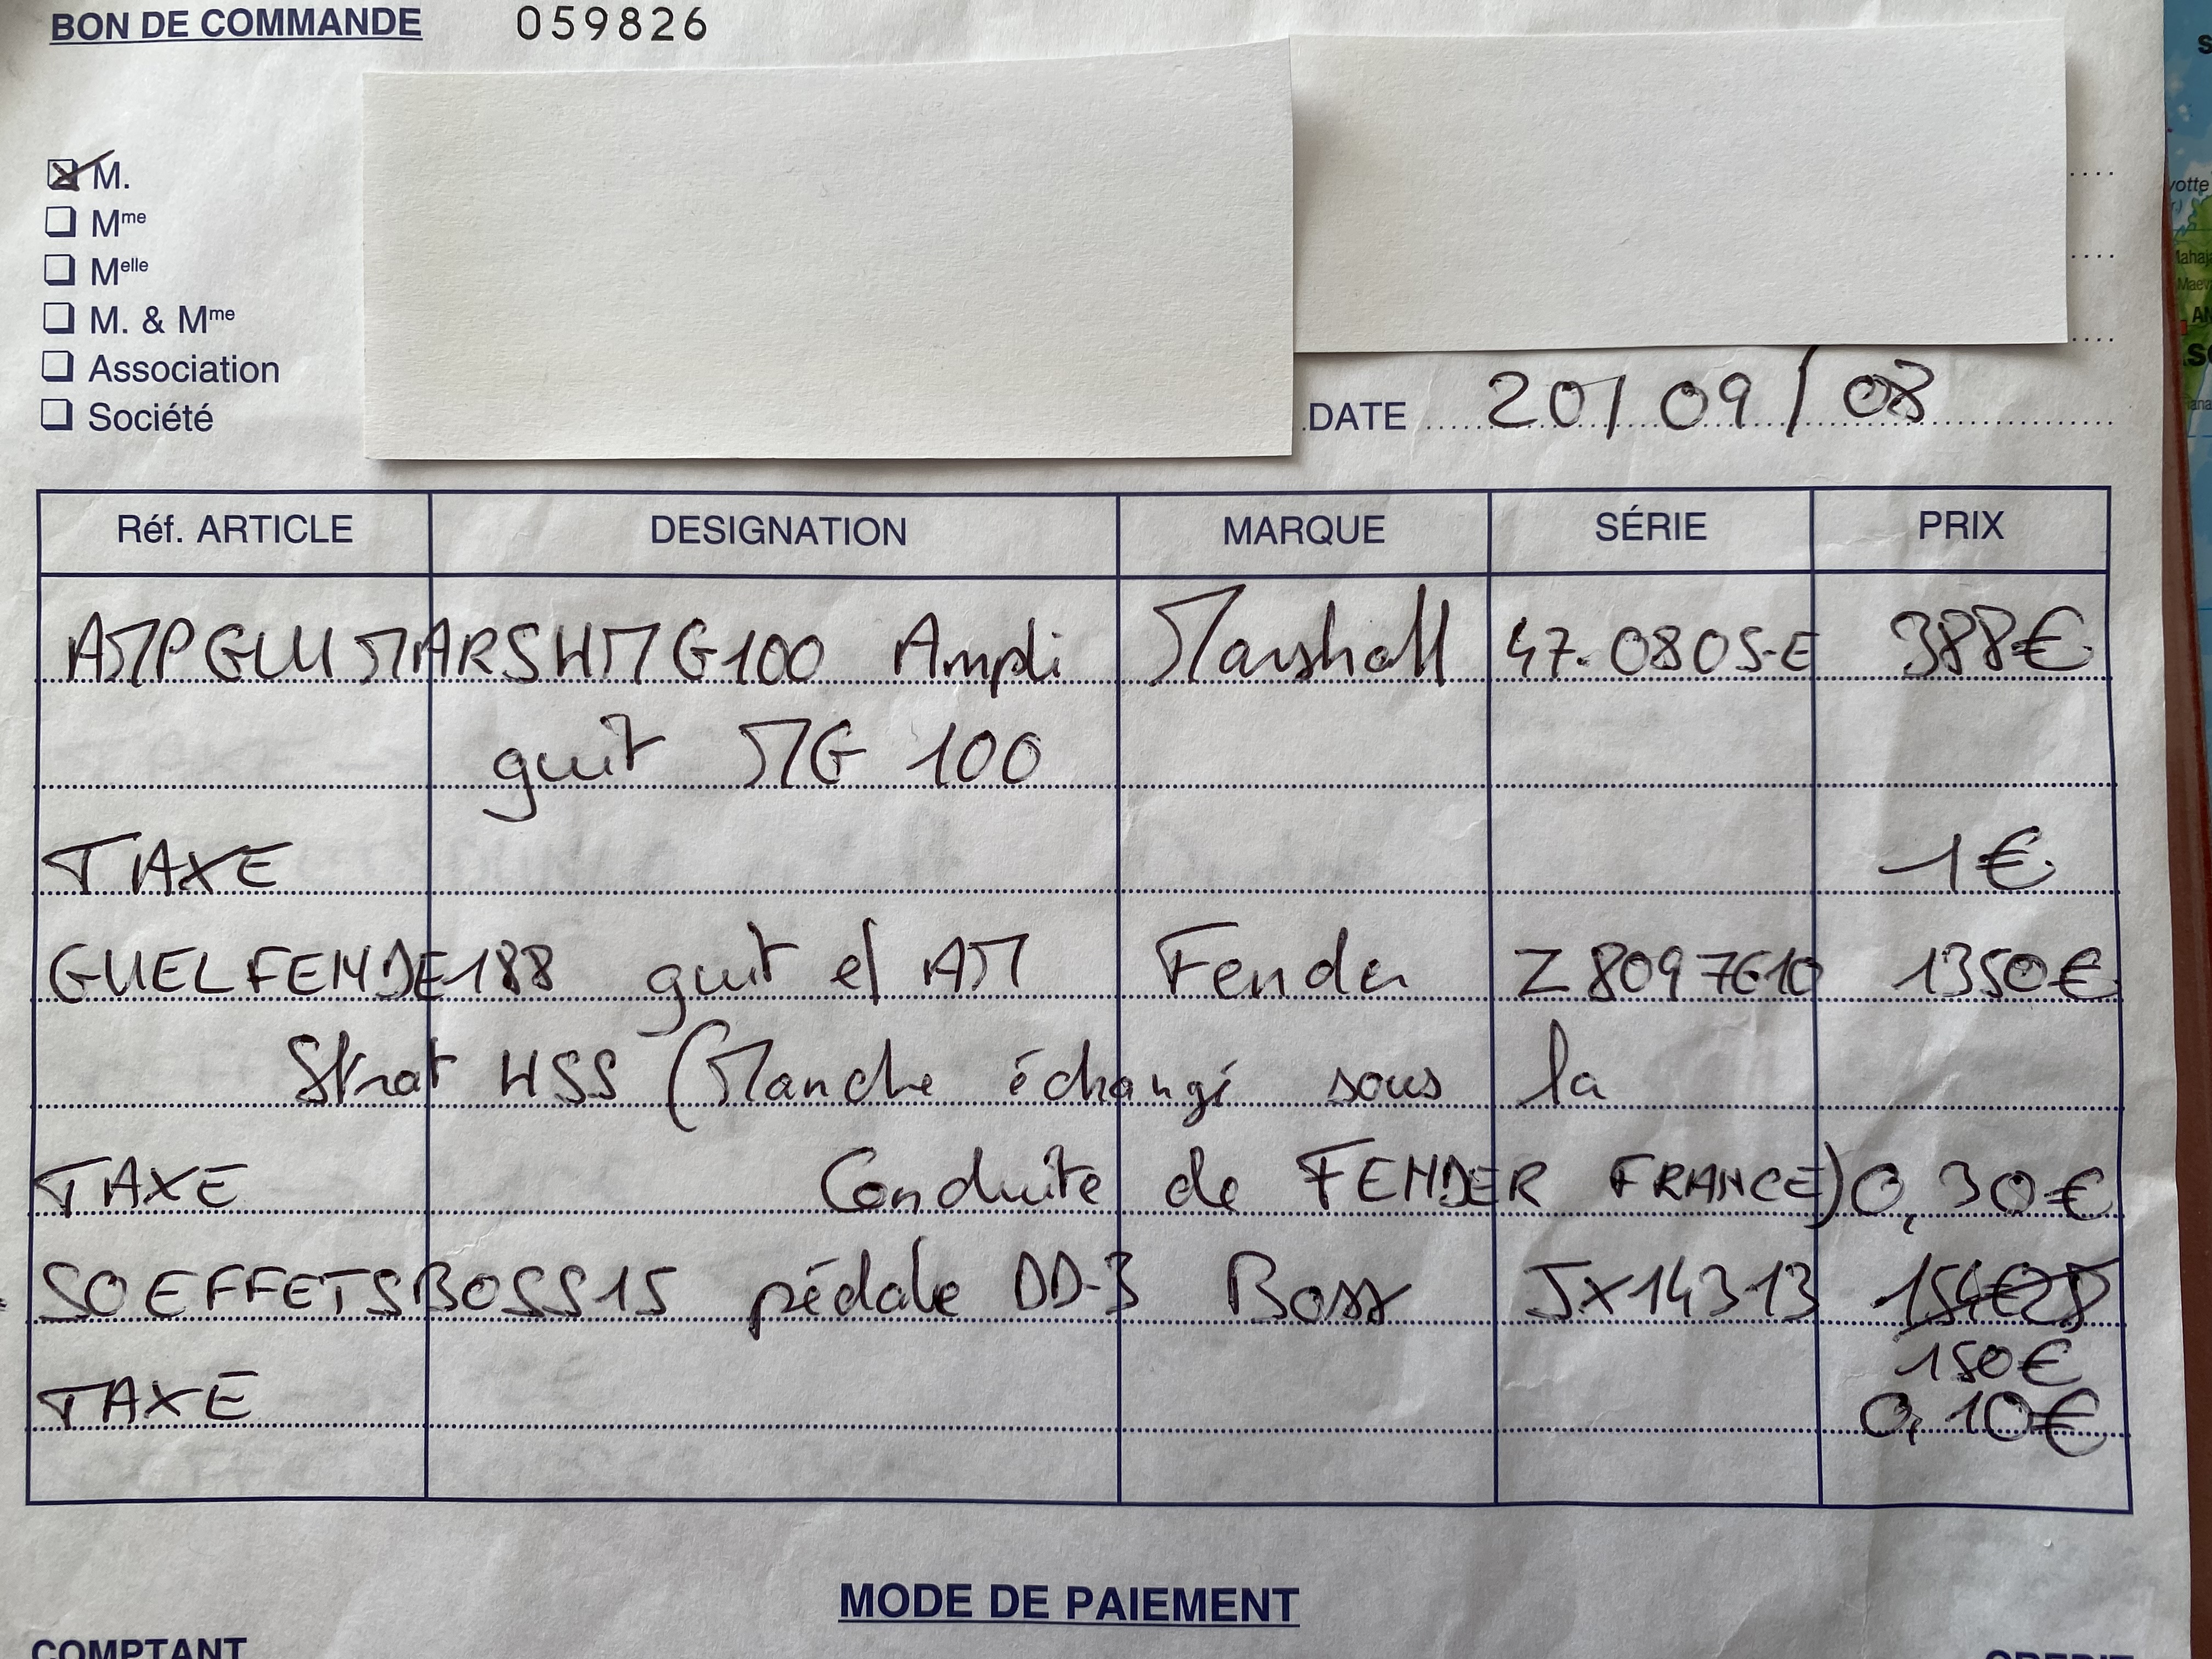 BON DE COMMANDE 059826
M.
Mme
Melle
M. & Mme
Association
Société
DATE 20/09/08
Réf. ARTICLE DESIGNATION MARQUE SÉRIE PRIX
AMPGUIMARSHMG100 Ampli Marshall 47.0805-E 388€
guit MG 100
TAXE 1€
GUELFENDE188 guit el AM Fender Z8097610 1350€
Strat HSS (Manche échangé sous la
TAXE Conduite de FENDER FRANCE) 0,30€
SOEFFETSBOSS15 pédale DD-3 Boss JX14313
150€
TAXE 0,10€
MODE DE PAIEMENT
COMPTANT CREDIT